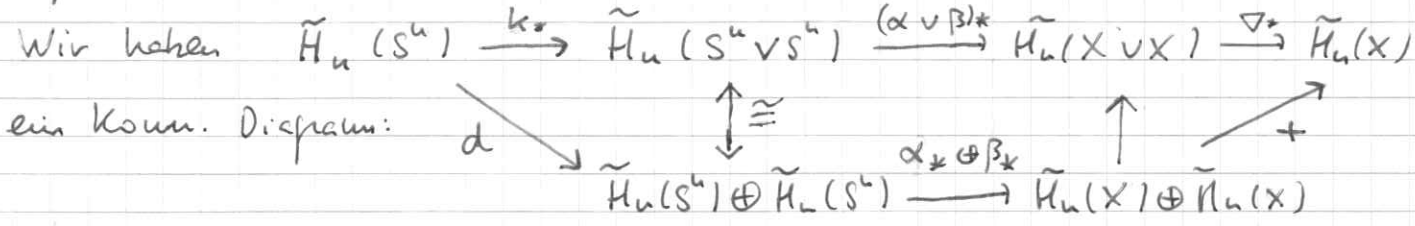 Wir haben H̃ₙ(Sⁿ) —k_*→ H̃ₙ(Sⁿ ∨ Sⁿ) —(α ∨ β)_*→ H̃ₙ(X ∨ X) —∇_*→ H̃ₙ(X)
ein Komm. Diagramm: ↘ d ↕ ≅ ↑ ↗ +
H̃ₙ(Sⁿ) ⊕ H̃ₙ(Sⁿ) —α_* ⊕ β_*→ H̃ₙ(X) ⊕ H̃ₙ(X)